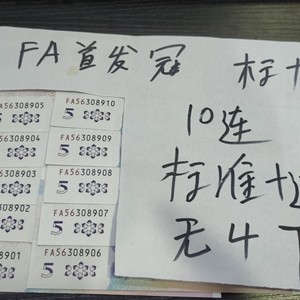 FA首发冠
标十
10连
标准十连
无4下
FA56308905 FA56308910
5 5
FA56308904 FA56308909
5 5
FA56308903 FA56308908
5 5
FA56308902 FA56308907
5 5
FA56308901 FA56308906
5 5